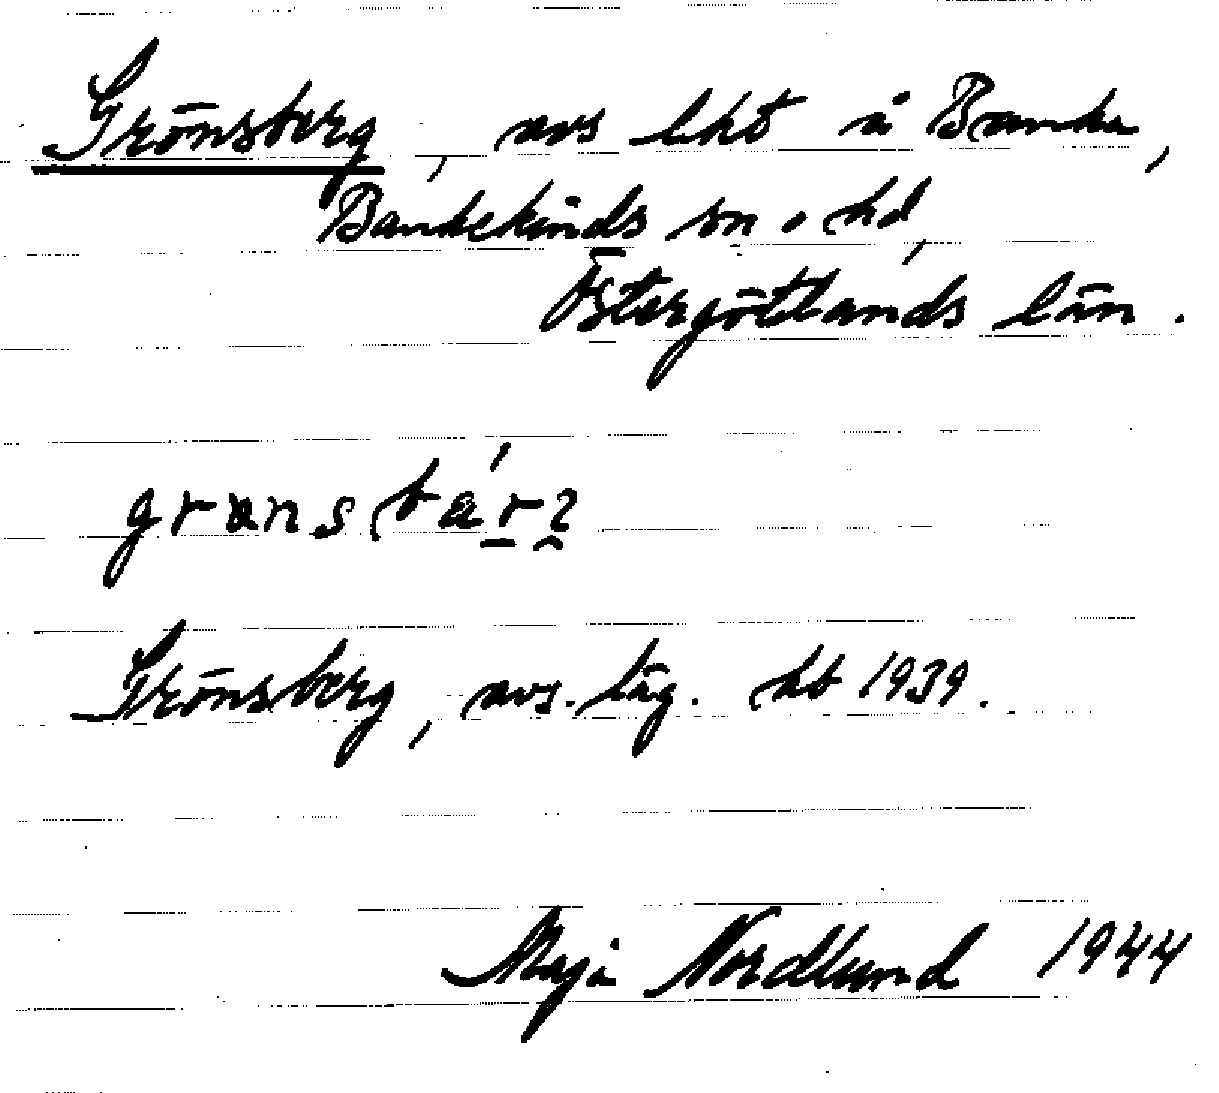 Grönsberg, avs lht å Banka,
Bankekinds sn o hd,
Östergötlands län.
Grönsberg, avs. läg. hb 1939.
Maja Nordlund 1944